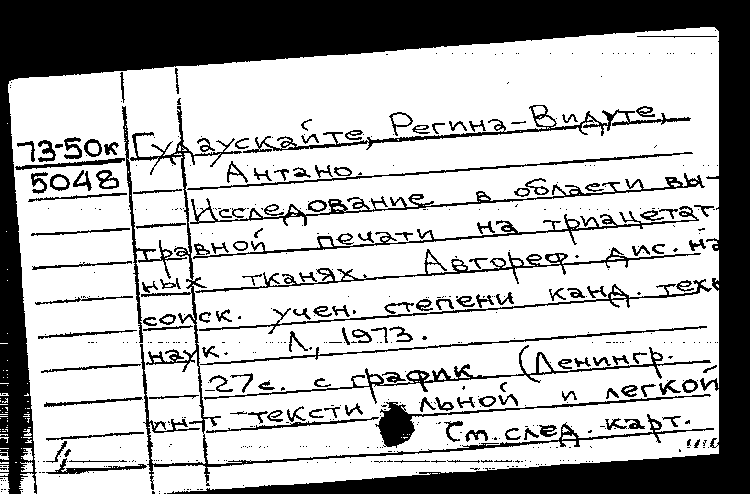 73-50к
5048
Гудаускайте, Регина-Видуте,
Антано.
Исследование в области вы-
травной печати на триацетат-
ных тканях. Автореф. дис. на
соиск. учен. степени канд. техн
наук. Л., 1973.
27с. с график. (Ленингр.
ин-т тексти льной и легкой
См. след. карт.